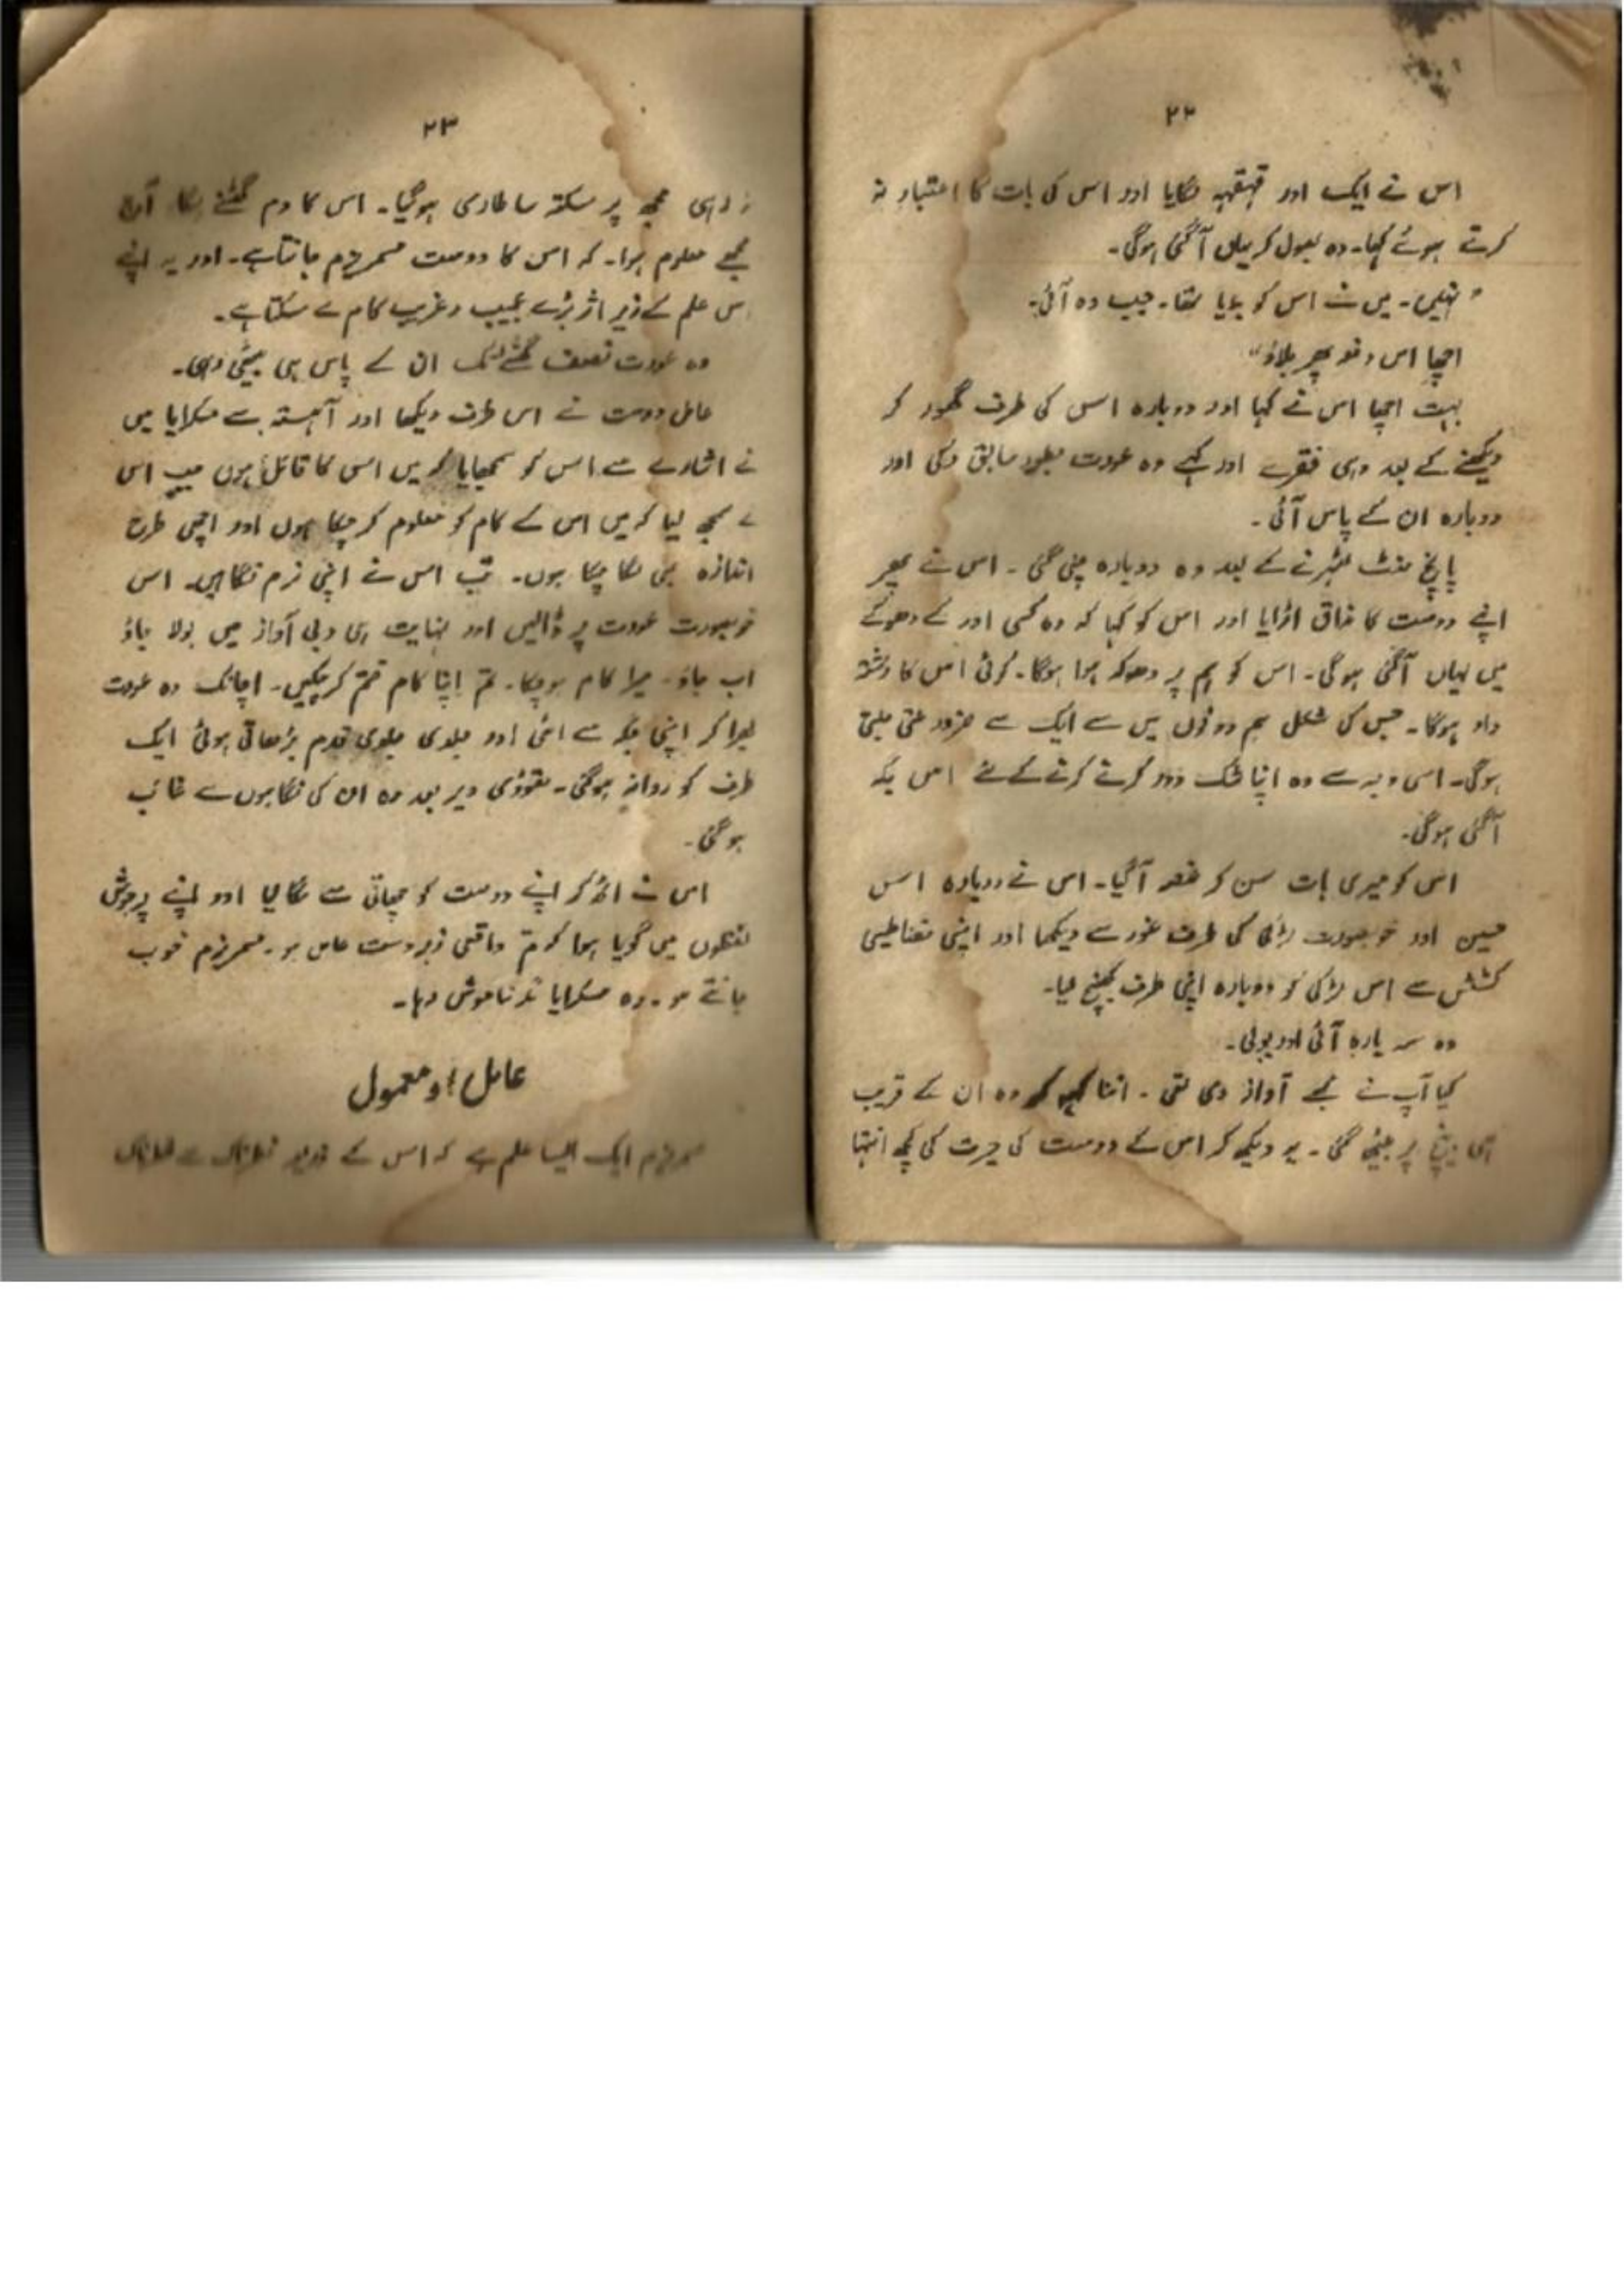 ۲۲
اس نے ایک اور قہقہہ لگایا اور اس کی بات کا اعتبار نہ
کرتے ہوئے کہا۔ وہ بھول کر یہاں آگئی ہوگی۔
" نہیں۔ میں نے اس کو بلایا تھا۔ جب وہ آئی۔
اچھا اس دفعہ پھر بلاؤ"
بہت اچھا اس نے کہا اور دوبارہ اس کی طرف گھور کر
دیکھنے کے بعد وہی فقرے اور کہے وہ عورت بطور سابق رکی اور
دوبارہ ان کے پاس آئی۔
پانچ منٹ ٹھہرنے کے بعد وہ دوبارہ چلی گئی۔ اس نے پھر
اپنے دوست کا مذاق اڑایا اور اس کو کہا کہ وہ کسی اور کے دھوکے
میں یہاں آگئی ہوگی۔ اس کو ہم پر دھوکہ ہوا ہوگا۔ کوئی اس کا رشتہ
دار ہوگا۔ جس کی شکل ہم دونوں میں سے ایک سے ضرور ملتی جلتی
ہوگی۔ اسی وجہ سے وہ اپنا شک دور کرنے کرنے کے لئے اس جگہ
آگئی ہوگی۔
اس کو میری بات سن کر غصہ آگیا۔ اس نے دوبارہ اس
حسین اور خوبصورت لڑکی کی طرف غور سے دیکھا اور اپنی مقناطیسی
کشش سے اس لڑکی کو دوبارہ اپنی طرف کھینچ لیا۔
وہ سہ بارہ آئی اور بولی۔
کیا آپ نے مجھے آواز دی تھی۔ اتنا کہہ کر وہ ان کے قریب
ہی بینچ پر بیٹھ گئی۔ یہ دیکھ کر اس کے دوست کی حیرت کی کچھ انتہا
۲۳
نہ رہی مجھ پر سکتہ سا طاری ہوگیا۔ اس کا دم گھٹنے لگا آج
مجھے معلوم ہوا۔ کہ اس کا دوست مسمریزم جانتا ہے۔ اور یہ اپنے
اس علم کے زیر اثر بڑے عجیب و غریب کام لے سکتا ہے۔
وہ عورت نصف گھنٹے تک ان کے پاس ہی بیٹھی رہی۔
عامل دوست نے اس طرف دیکھا اور آہستہ سے مسکرایا میں
نے اشارے سے اس کو سمجھایا کہ میں اس کا قائل ہوں جب اس
نے سمجھ لیا کہ میں اس کے کام کو معلوم کر چکا ہوں اور اچھی طرح
اندازہ بھی لگا چکا ہوں۔ تب اس نے اپنی نرم نگاہیں اس
خوبصورت عورت پر ڈالیں اور نہایت ہی دبی آواز میں بولا جاؤ
اب جاؤ۔ میرا کام ہوچکا۔ تم اپنا کام ختم کر چکیں۔ اچانک وہ عورت
گھبرا کر اپنی جگہ سے اٹھی اور جلدی جلدی قدم بڑھاتی ہوئی ایک
طرف کو روانہ ہوگئی۔ تھوڑی دیر بعد وہ ان کی نگاہوں سے غائب
ہوگئی۔
اس نے اٹھ کر اپنے دوست کو چھاتی سے لگا لیا اور اپنے پرجوش
لفظوں میں گویا ہوا کہ تم واقعی زبردست عامل ہو۔ مسمریزم خوب
جانتے ہو۔ وہ مسکرایا خاموش رہا۔
عامل اور معمول
مسمریزم ایک ایسا علم ہے کہ اس کے ذریعہ خطرناک سے خطرناک